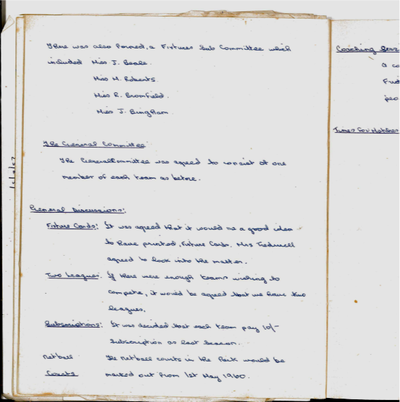 There was also formed, a Fixtures Sub Committee which
included Miss J. Beale.
Miss M. Roberts.
Miss R. Bromfield.
Miss J. Bingham.
The General Committee
The General Committee was agreed to consist of one
member of each team as before.
General Discussions:
Fixture Cards: It was agreed that it would be a good idea
to have printed, Fixture Cards. Mrs
agreed to look into the matter.
Two Leagues: If there were enough teams wishing to
compete, it would be agreed that we have two
leagues.
Subscriptions: It was decided that each team pay 10/-
Subscription as last season.
Netball The netball courts in the Park would be
Courts marked out from 1st May 1960.
Coaching